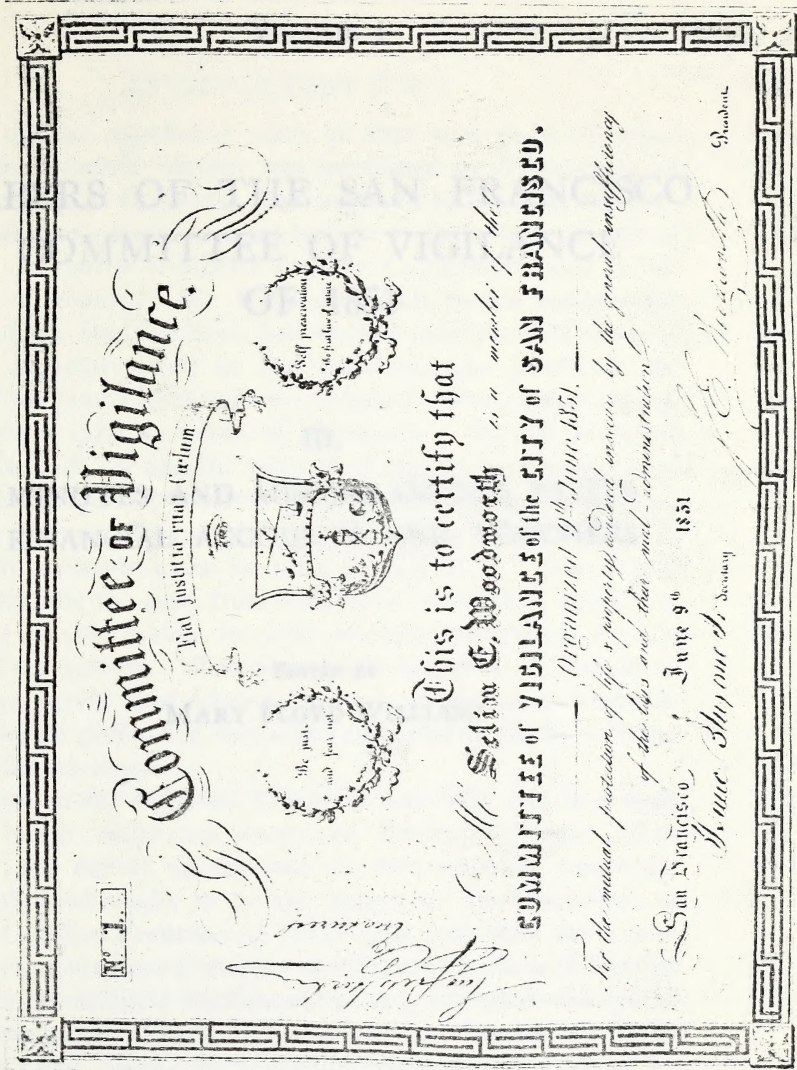 Nº 1.
Committee OF Vigilance.
Fiat justitia ruat Cœlum.
Be just
and fear not
Self preservation
the first law of nature
This is to certify that
Mr Selim E. Woodworth is a member of the
COMMITTEE of VIGILANCE of the CITY of SAN FRANCISCO.
Organized 9th June 1851.
For the mutual protection of life & property, rendered insecure by the general insufficiency
of the laws and their mal administration
San Francisco, June 9th 1851
Secretary
President
OF THE SAN FRANCISCO
COMMITTEE OF VIGILANCE
OF
III